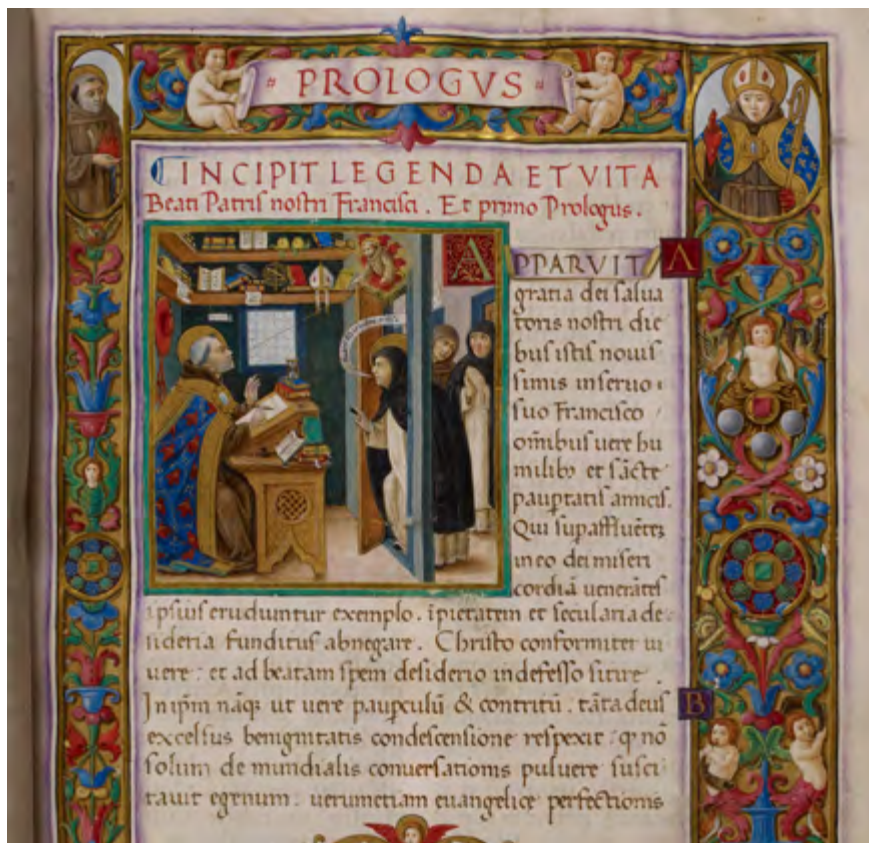 PROLOGVS
INCIPIT LEGENDA ET VITA
Beati Patris nostri Francisci . Et primo Prologus .
A
APPARVIT
gratia dei salua
toris nostri die
bus istis nouis
simis in seruo
suo Francisco
om̅ibus uere hu
milib; et sācte
paup̱tatis amicis.
Qui sup̱affluētē
in eo dei miseri
cordiā uenerātes
ipsius erudiuntur exemplo . īpietatem et secularia de
sideria funditus abnegare . Christo conformiter ui
uere : et ad beatam spem desiderio indefesso sitire
B
In ip̅m nāq; ut uere paup̱culū & contritū : tāta deus
excelsus benignitatis condescensione respexit : q̱ nō
solum de mundialis conuersationis puluere susci
tauit egenum : uerumetiam euangelice perfectionis